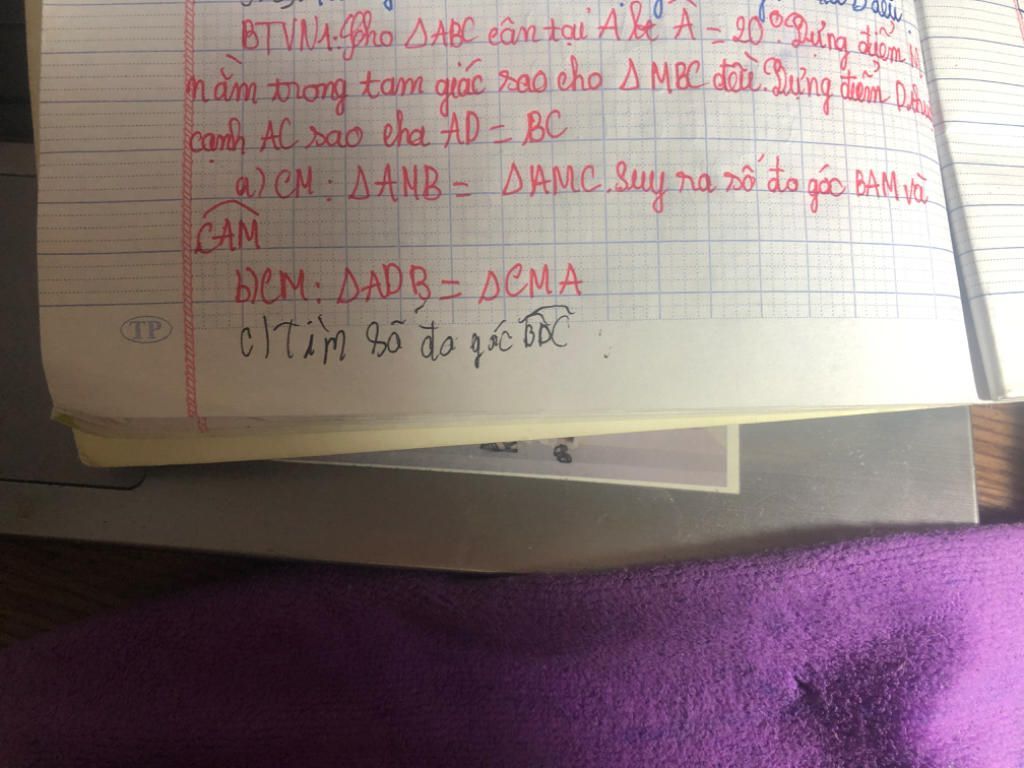 BTVN1. Cho ΔABC cân tại A & Â = 20° Dựng điểm M
nằm trong tam giác sao cho ΔMBC đều. Dựng điểm D
cạnh AC sao cha AD = BC
a) CM: ΔAMB = ΔAMC. Suy ra số đo góc BAM và
CAM
b) CM: ΔADB = ΔCMA
TP
c) Tìm số đo góc BDC